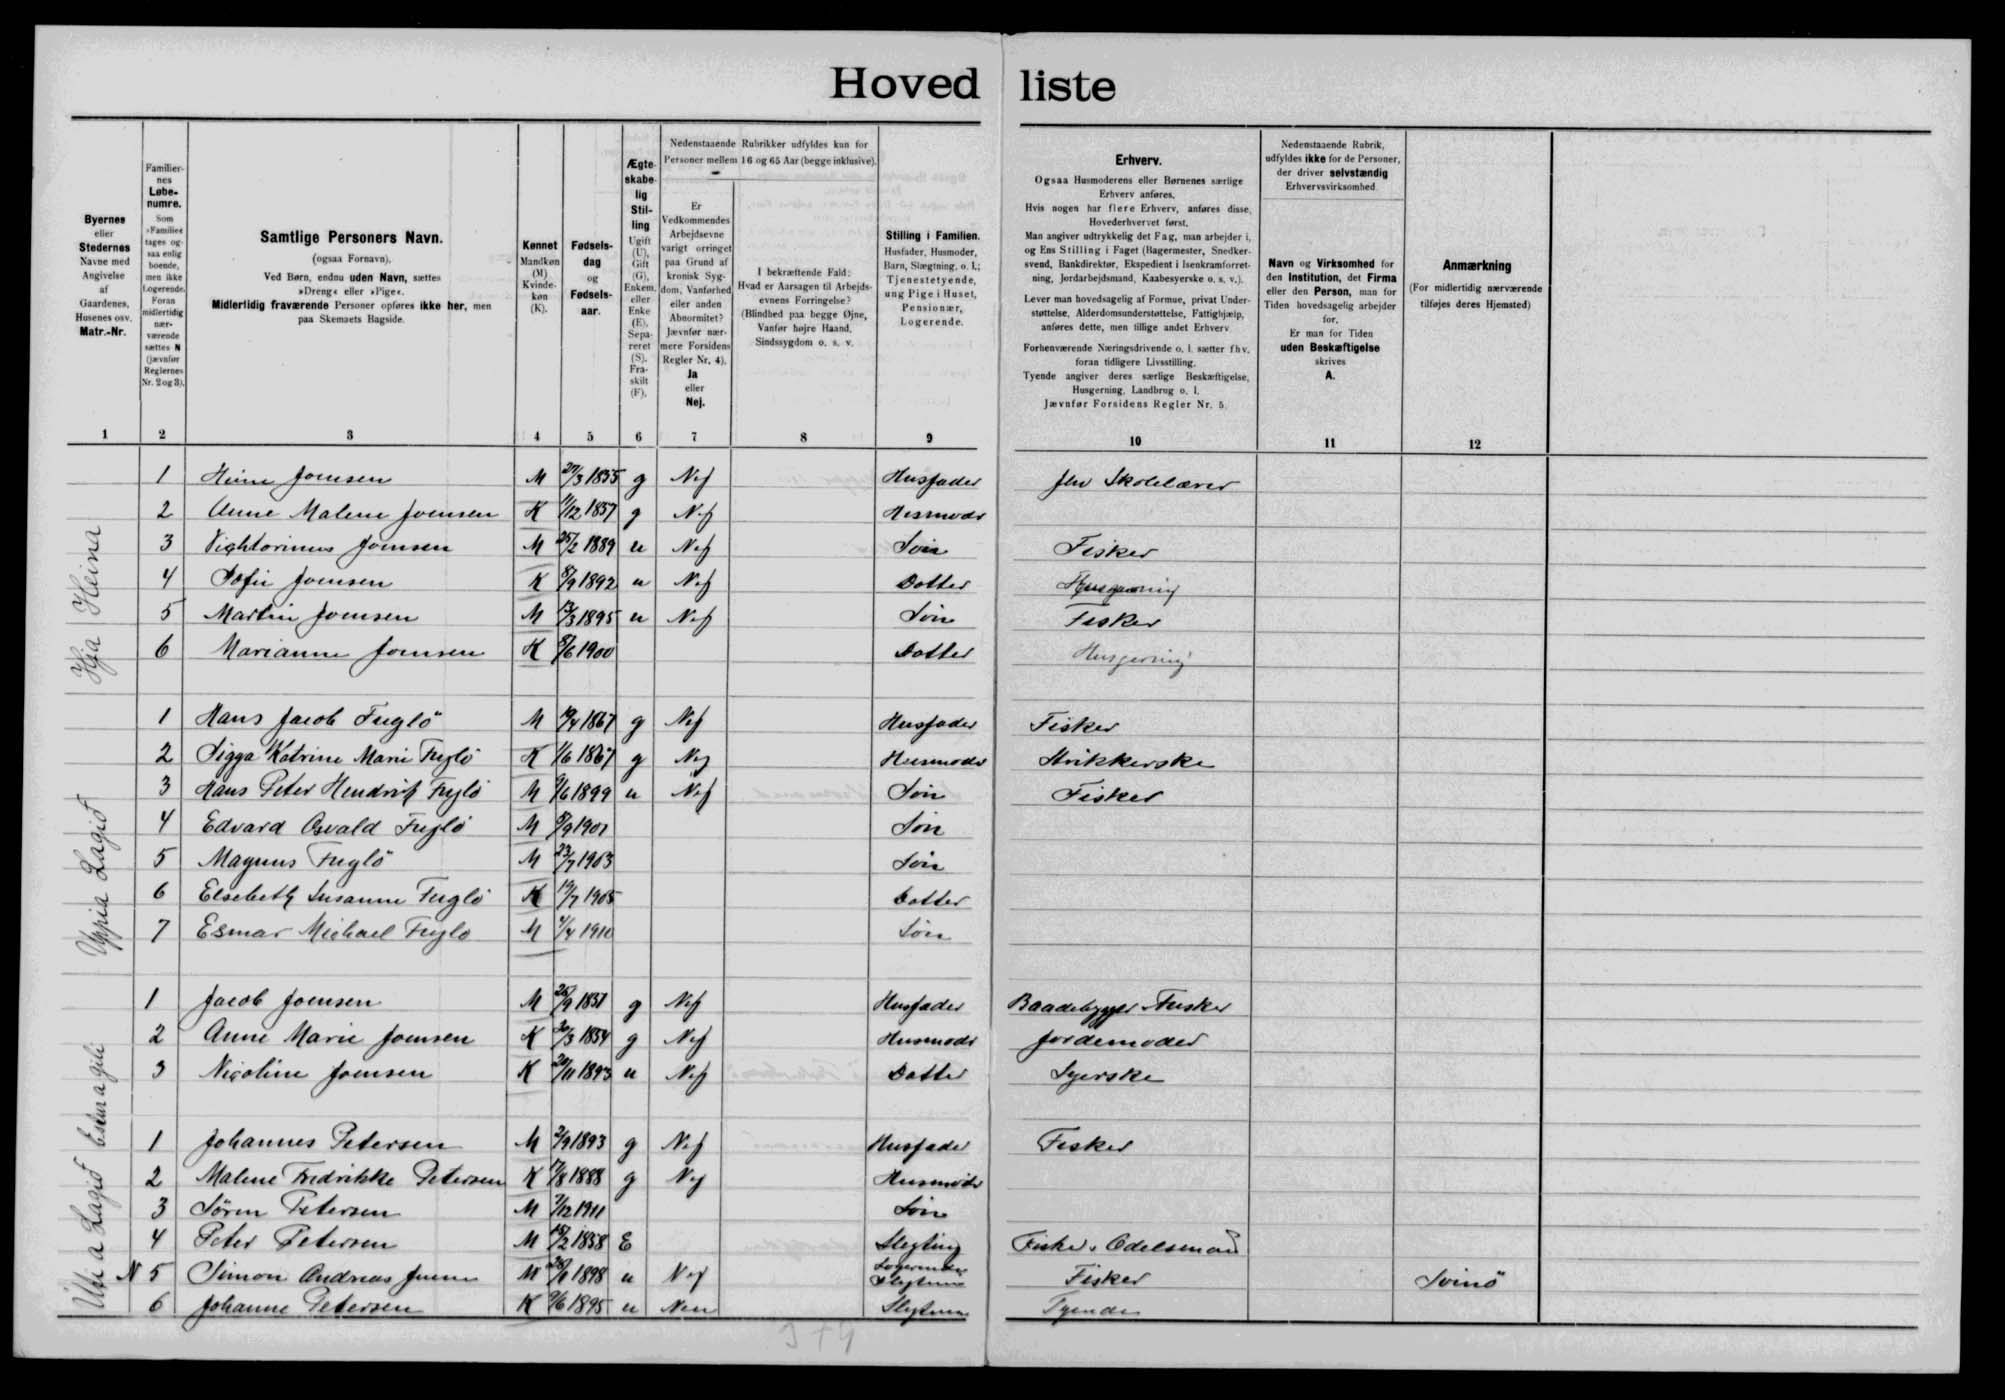 Hovedliste
Byernes
eller
Stedernes
Navne med
Angivelse
af
Gaardenes,
Husenes osv.
Matr.-Nr.
Familier-
nes
Løbe-
numre.
Som
»Familie«
tages og-
saa enlig
boende,
men ikke
Logerende.
Foran
midlertidig
nær-
værende
sættes N
(jævnfør
Reglernes
Nr. 2 og 3).
Samtlige Personers Navn.
(ogsaa Fornavn).
Ved Børn, endnu uden Navn, sættes
»Dreng« eller »Pige«.
Midlertidig fraværende Personer opføres ikke her, men
paa Skemaets Bagside.
Kønnet
Mandkøn
(M)
Kvinde-
køn
(K).
Fødsels-
dag
og
Fødsels-
aar.
Ægte-
skabe-
lig
Stil-
ling
Ugift
(U),
Gift
(G),
Enkem.
eller
Enke
(E),
Sepa-
reret
(S).
Fra-
skilt
(F).
Nedenstaaende Rubrikker udfyldes kun for
Personer mellem 16 og 65 Aar (begge inklusive).
Er
Vedkommendes
Arbejdsevne
varigt forringet
paa Grund af
kronisk Syg-
dom, Vanførhed
eller anden
Abnormitet?
Jævnfør nær-
mere Forsidens
Regler Nr. 4).
Ja
eller
Nej.
I bekræftende Fald:
Hvad er Aarsagen til Arbejds-
evnens Forringelse?
(Blindhed paa begge Øjne,
Vanfør højre Haand,
Sindssygdom o. s. v.
Stilling i Familien.
Husfader, Husmoder,
Barn, Slægtning, o. l.;
Tjenestetyende,
ung Pige i Huset,
Pensionær,
Logerende.
Erhverv.
Ogsaa Husmoderens eller Børnenes særlige
Erhverv anføres.
Hvis nogen har flere Erhverv, anføres disse,
Hovederhvervet først.
Man angiver udtrykkelig det Fag, man arbejder i,
og Ens Stilling i Faget (Bagermester, Snedker-
svend, Bankdirektør, Ekspedient i Isenkramforret-
ning, Jordarbejdsmand, Kaabesyerske o. s. v.).
Lever man hovedsagelig af Formue, privat Under-
støttelse, Alderdomsunderstøttelse, Fattighjælp,
anføres dette, men tillige andet Erhverv
Forhenværende Næringsdrivende o. l. sætter fhv.
foran tidligere Livsstilling.
Tyende angiver deres særlige Beskæftigelse,
Husgerning, Landbrug o. l.
Jævnfør Forsidens Regler Nr. 5.
Nedenstaaende Rubrik,
udfyldes ikke for de Personer,
der driver selvstændig
Erhvervsvirksomhed
Navn og Virksomhed for
den Institution, det Firma
eller den Person, man for
Tiden hovedsagelig arbejder
for.
Er man for Tiden
uden Beskæftigelse
skrives
A.
Anmærkning
(For midlertidig nærværende
tilføjes deres Hjemsted)
1 2 3 4 5 6 7 8 9 10 11 12
Hja Heina
1 Heine Joensen M 27/3 1855 g Nej Husfader fhv Skolelærer
2 Anne Malene Joensen K 11/12 1857 g Nej Husmodr
3 Vightorinus Joensen M 25/2 1889 u Nej Søn Fisker
4 Sofie Joensen K 8/9 1892 u Nej Datter Husgerning
5 Martin Joensen M 13/3 1895 u Nej Søn Fisker
6 Marianne Joensen K 8/6 1900 Datter Husgerning
Uppia Lagið
1 Hans Jacob Fuglö M 19/4 1867 g Nej Husfader Fisker
2 Sigga Katrine Marie Fuglö K 1/6 1867 g Nej Husmodr Strikkerske
3 Hans Peter Hendrik Fuglö M 9/6 1899 u Nej Søn Fisker
4 Edvard Osvald Fuglö M 9/9 1901 Søn
5 Magnus Fuglö M 23/7 1903 Søn
6 Elsebeth Susanne Fuglö K 19/7 1905 Datter
7 Esmar Michael Fuglö M 4/4 1910 Søn
1 Jacob Joensen M 26/9 1851 g Nej Husfader Baadebygger Fisker
2 Anne Marie Joensen K 30/3 1854 g Nej Husmodr Jordemoder
3 Nicoline Joensen K 20/11 1893 u Nej Datter Syerske
1 Johannes Petersen M 2/9 1893 g Nej Husfader Fisker
2 Malene Fredrikke Petersen K 17/8 1888 g Nej Husmodr
3 Sören Petersen M 7/12 1911 Søn
4 Peter Petersen M 15/2 1838 E Slegting Fisker Odelsmand
N 5 Simon Andreas M 1898 u Nej Logerende Fisker Svinö
6 Johanne Petersen K 9/6 1895 u Tyende